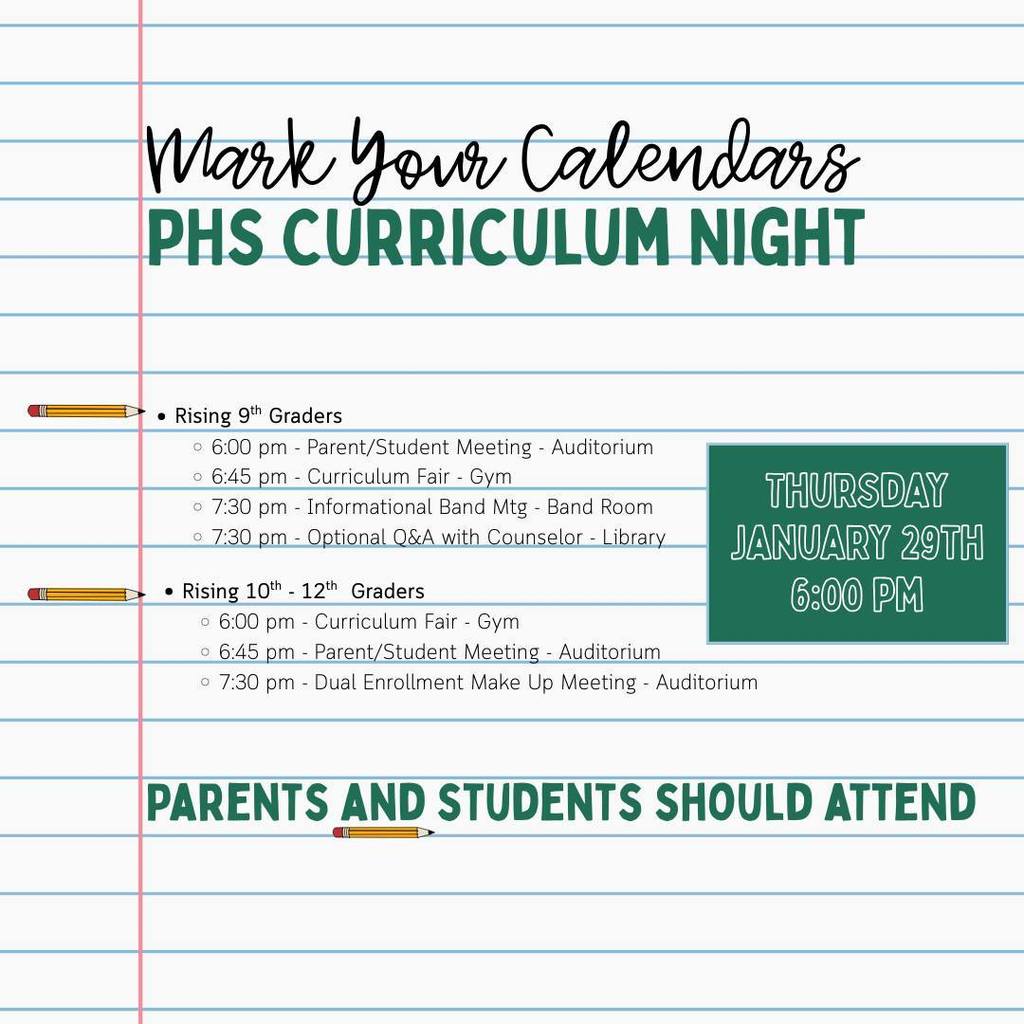 Mark Your Calendars
PHS CURRICULUM NIGHT
• Rising 9th Graders
○ 6:00 pm - Parent/Student Meeting - Auditorium
○ 6:45 pm - Curriculum Fair - Gym
○ 7:30 pm - Informational Band Mtg - Band Room
○ 7:30 pm - Optional Q&A with Counselor - Library
• Rising 10th - 12th Graders
○ 6:00 pm - Curriculum Fair - Gym
○ 6:45 pm - Parent/Student Meeting - Auditorium
○ 7:30 pm - Dual Enrollment Make Up Meeting - Auditorium
THURSDAY
JANUARY 29TH
6:00 PM
PARENTS AND STUDENTS SHOULD ATTEND